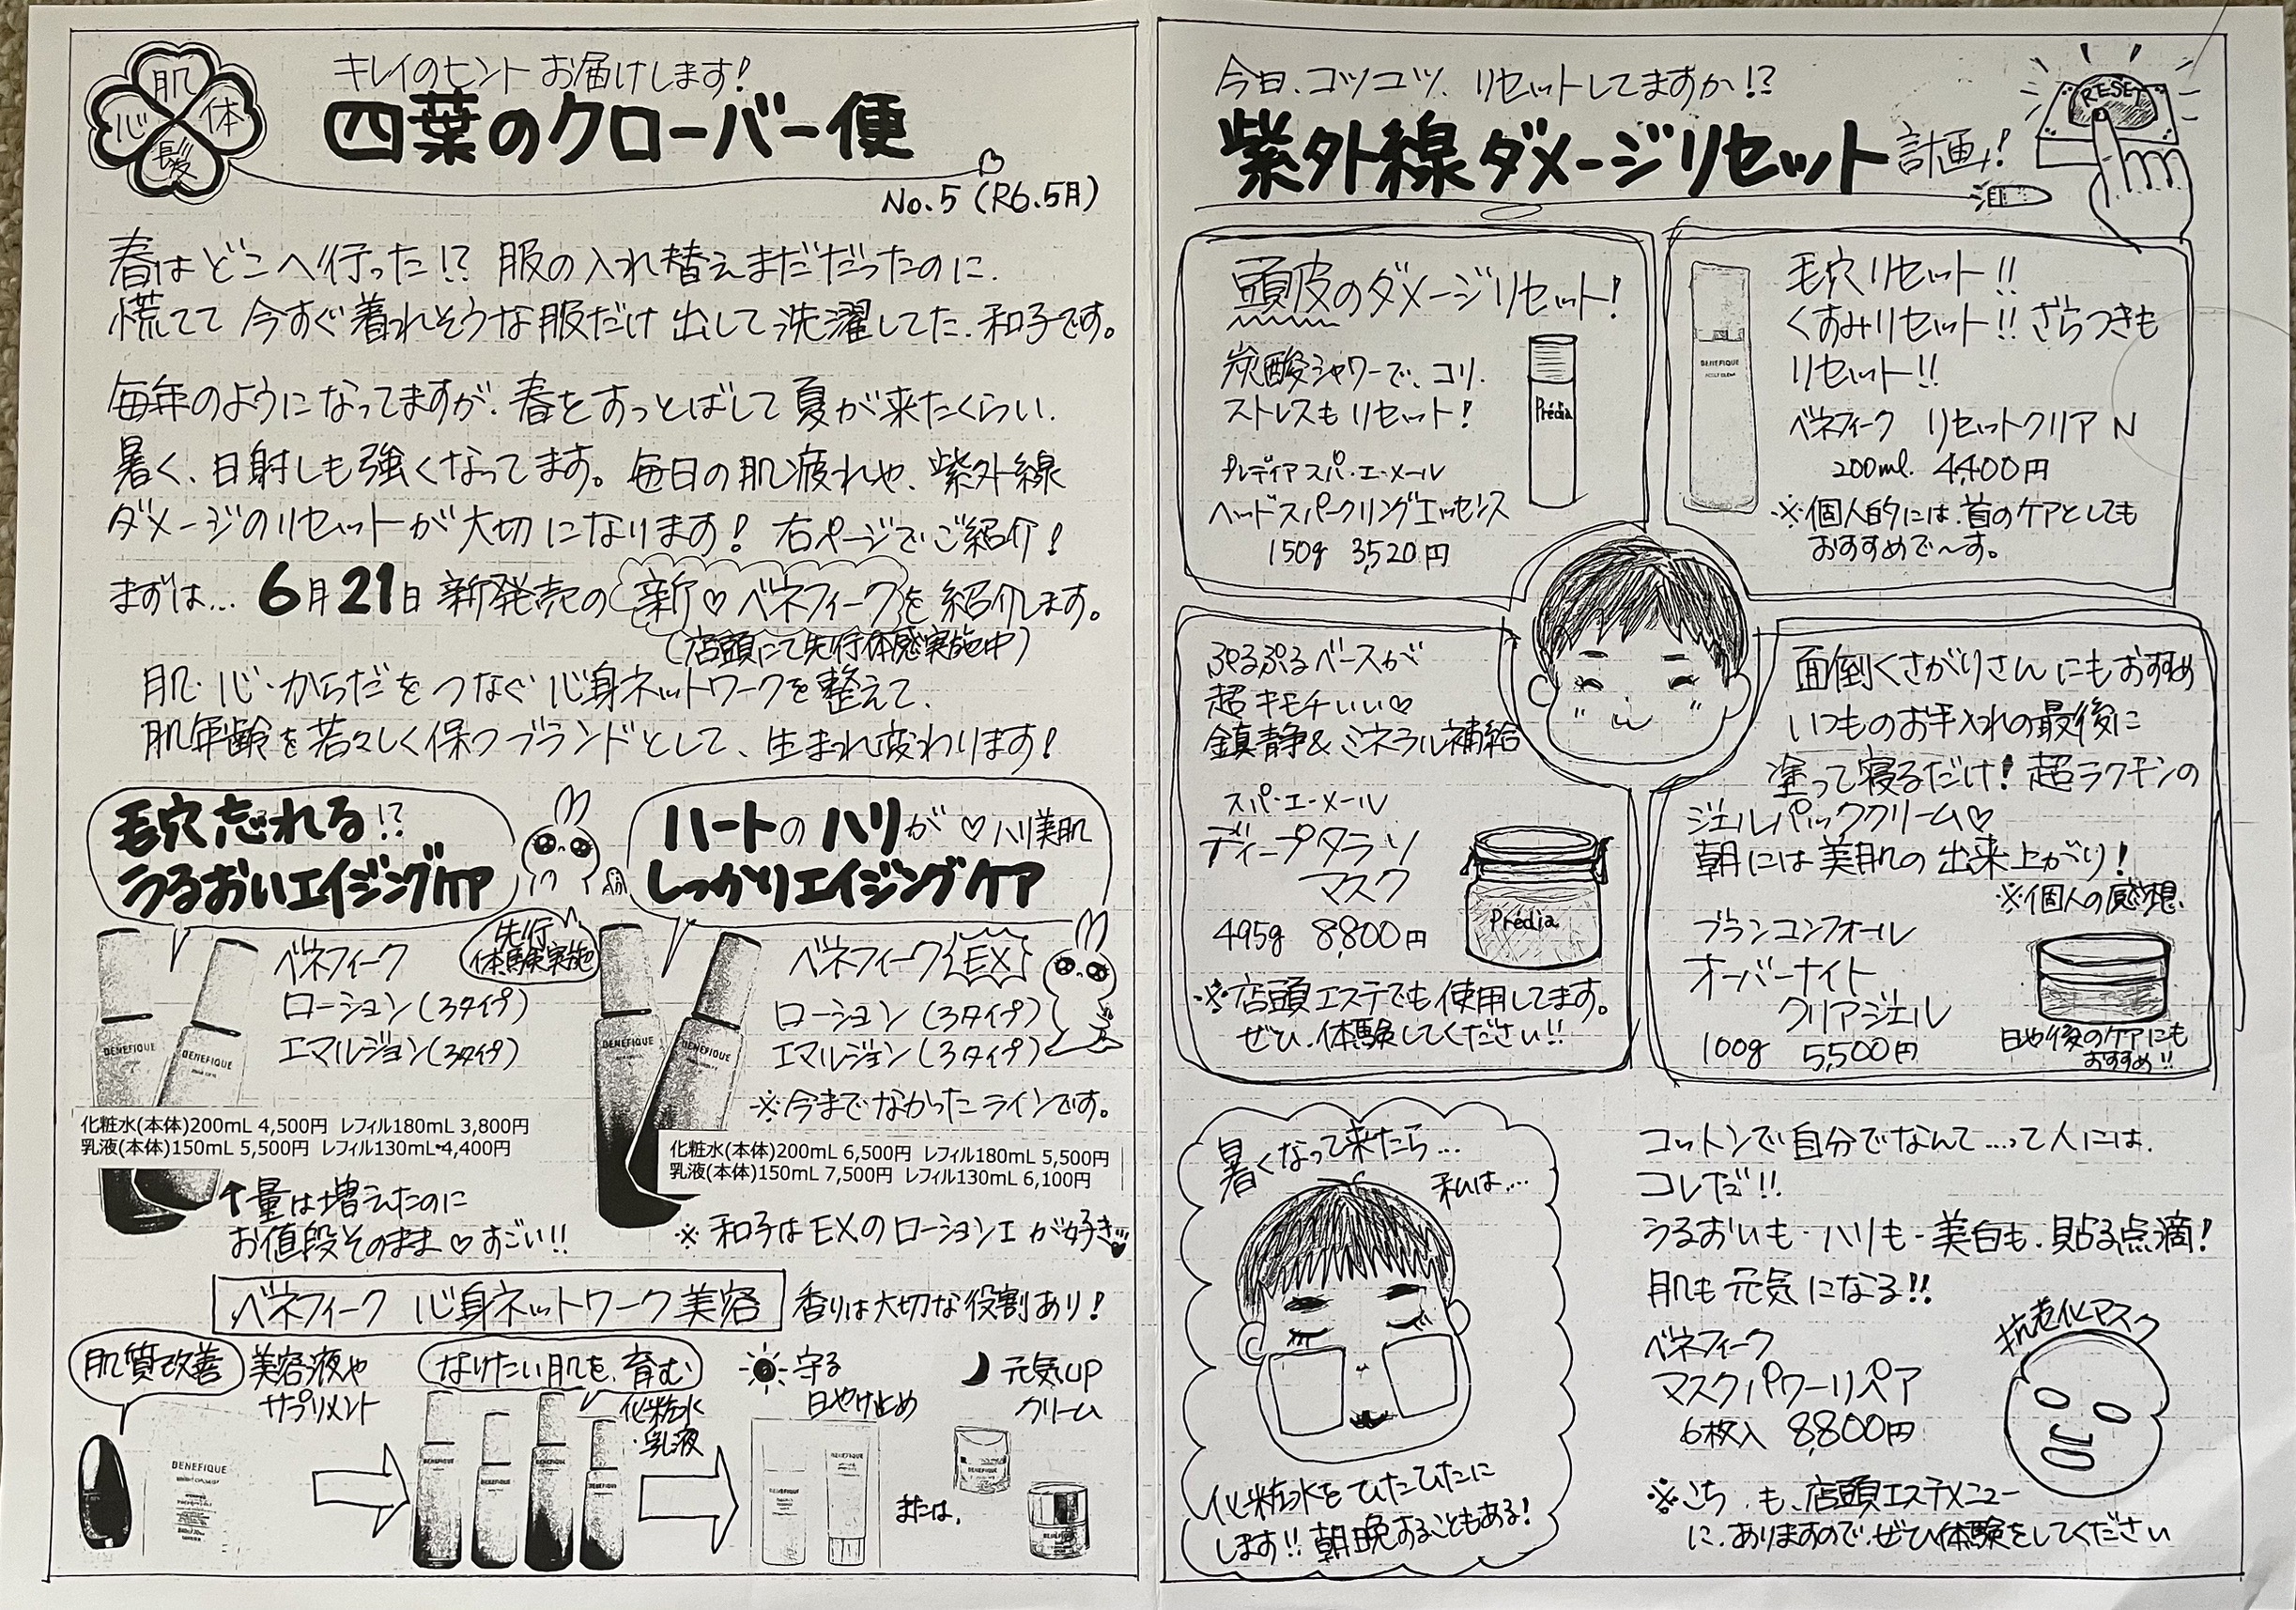 肌
心
体
髪
キレイのヒント お届けします!
四葉のクローバー便
No.5 (R6.5月)
春はどこへ行った!? 服の入れ替えまだだったのに、
慌てて 今すぐ着れそうな服だけ 出して洗濯してた、和子です。
毎年のようになってますが、春をすっとばして夏が来たくらい、
暑く、日射しも強くなってます。毎日の肌疲れや、紫外線
ダメージのリセットが大切になります! 右ページでご紹介!
まずは… 6月21日 新発売の 新♡ベネフィークを 紹介します。
(店頭にて先行体感実施中)
肌・心・からだを つなぐ 心身ネットワークを 整えて、
肌年齢を若々しく保つブランドとして、生まれ変わります!
毛穴忘れる!?
うるおいエイジングケア
ハートのハリが♡ハリ美肌
しっかりエイジングケア
先行
体験実施
ベネフィーク
ローション(3タイプ)
エマルジョン(3タイプ)
BENEFIQUE
BENEFIQUE
化粧水(本体)200mL 4,500円 レフィル180mL 3,800円
乳液(本体)150mL 5,500円 レフィル130mL 4,400円
↑量は増えたのに
お値段そのまま♡すごい!!
ベネフィークEX
ローション(3タイプ)
エマルジョン(3タイプ)
※今までなかったラインです。
BENEFIQUE
BENEFIQUE
化粧水(本体)200mL 6,500円 レフィル180mL 5,500円
乳液(本体)150mL 7,500円 レフィル130mL 6,100円
※和子はEXのローションⅠが好き♥
ベネフィーク 心身ネットワーク美容 香りは大切な役割あり!
肌質改善 美容液や
サプリメント
BENEFIQUE
なりたい肌を、育む
化粧水
・乳液
BENEFIQUE
BENEFIQUE
BENEFIQUE
BENEFIQUE
守る
日やけ止め
BENEFIQUE
BENEFIQUE
または、
元気UP
クリーム
BENEFIQUE
BENEFIQUE
今日、コツコツ、リセットしてますか!?
紫外線ダメージリセット計画!
RESET
頭皮のダメージリセット!
炭酸シャワーで、コリ、
ストレスもリセット!
Prédia
プレディア スパ・エ・メール
ヘッドスパークリングエッセンス
150g 3,520円
毛穴リセット!!
くすみリセット!! ざらつきも
リセット!!
BENEFIQUE
ベネフィーク リセットクリア N
200ml 4,400円
※個人的には、首のケアとしても
おすすめで〜す。
ぷるぷるベースが
超キモチいい♡
鎮静&ミネラル補給
スパ・エ・メール
ディープタラソ
マスク
495g 8,800円
Prédia
※店頭エステでも使用してます。
ぜひ、体験してください!!
面倒くさがりさんにもおすすめ
いつものお手入れの最後に
塗って寝るだけ! 超ラクチンの
ジェルパッククリーム♡
朝には美肌の出来上がり!
※個人の感想、
ブランコンフォール
オーバーナイト
クリアジェル
100g 5,500円
日やけ後のケアにも
おすすめ!!
暑くなって来たら…
私は…
化粧水をひたひたに
します!! 朝晩することもある!
コットンで自分でなんて…って人には、
コレだ!!
うるおいも・ハリも・美白も、貼る点滴!
肌も元気になる!!
抗老化マスク
ベネフィーク
マスクパワーリペア
6枚入 8,800円
※こち も、店頭エステメニュー
に、ありますので、ぜひ体験をしてください